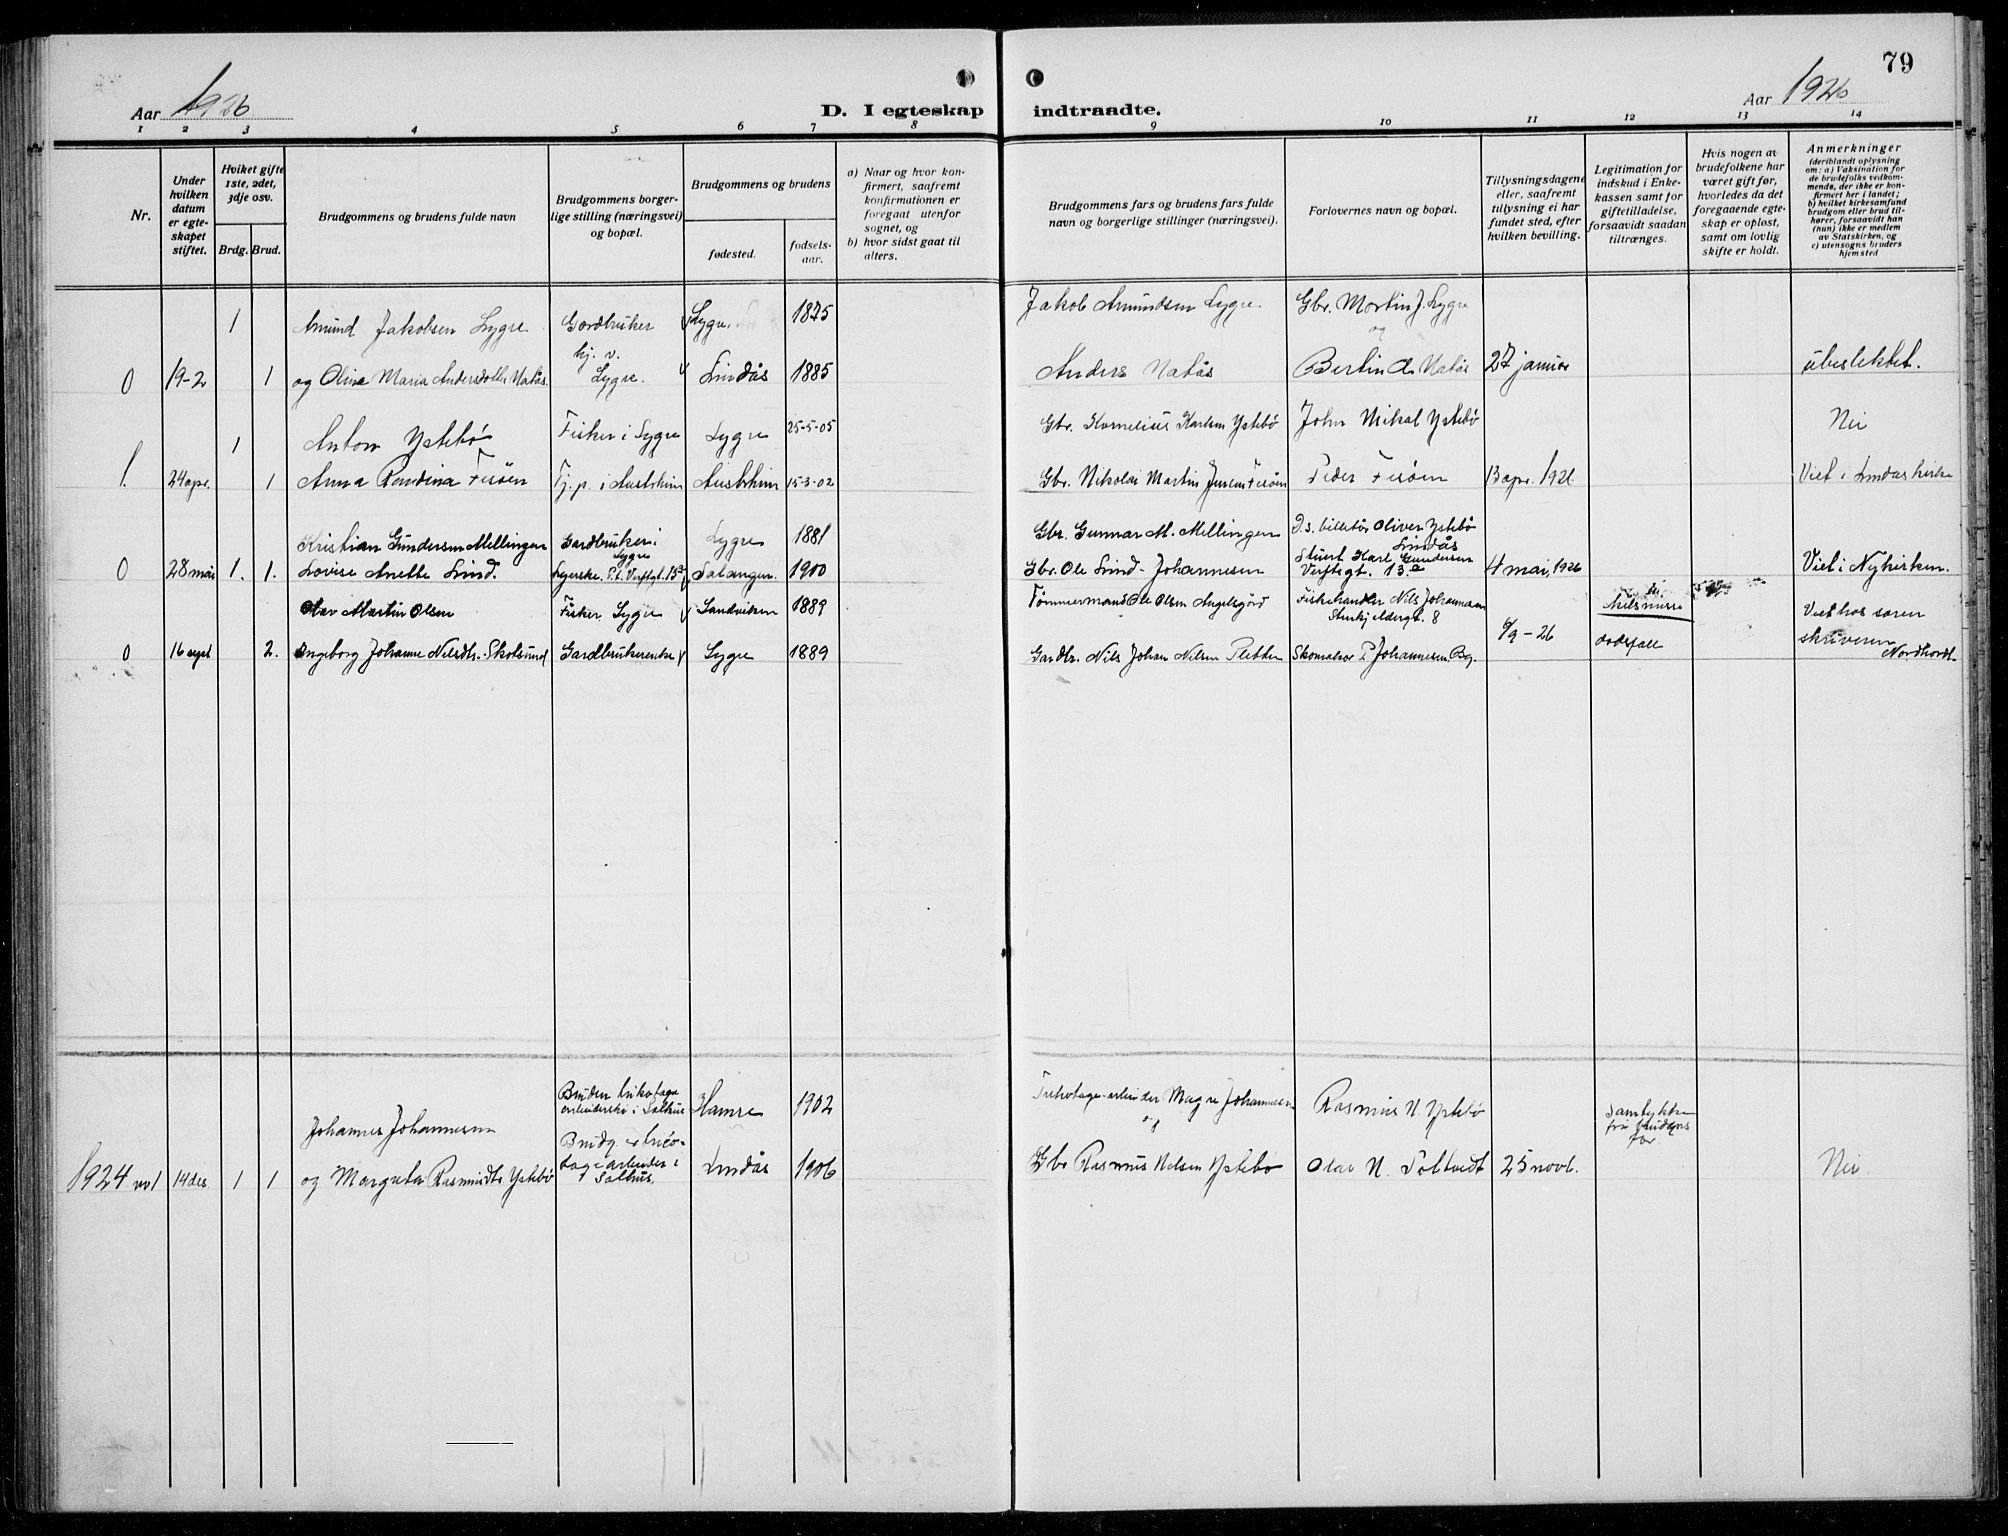 79
Aar 1926.
D. I egteskap indtraadte.
Aar 1926
1 2 3 4 5 6 7 8 9 10 11 12 13 14
Nr.
Under hvilken datum er egteskapet stiftet.
Hviket gifte 1ste, 2det, 3dje osv.
Brdg. Brud.
Brudgommens og brudens fulde navn
Brudgommens borgerlige stilling (næringsvei) og bopæl.
Brudgommens og brudens
fødested.
fødselsaar.
a) Naar og hvor konfirmert, saafremt konfirmationen er foregaat utenfor sognet, og
b) hvor sidst gaat til alters.
Brudgommens fars og brudens fars fulde navn og borgerlige stillinger (næringsvei).
Forlovernes navn og bopæl.
Tillysningsdagene eller, saafremt tillysning ei har fundet sted, efter hvilken bevilling.
Legitimation for indskud i Enkekassen samt for giftetilladelse, forsaavidt saadan tiltrænges.
Hvis nogen av brudefolkene har været gift før, hvorledes da det foregaaende egteskap er opløst, samt om lovlig skifte er holdt.
Anmerkninger (deriblandt oplysning om: a) Vaksination for de brudefolks vedkommende, der ikke er konfirmert her i landet; b) hvilket kirkesamfund brudgom eller brud tilhører, forsaavidt han (hun) ikke er medlem av Statskirken, og c) utensogns bruders hjemsted
1 Amund Jakobsen Lygre Gardbruker Lygre 1875 Jakob Amundsen Lygre Gbr. Martin J. Lygre
hj. v. og
0 19-2 1 og Olina Maria Andersdotter Natås Lygre. Lindås 1885 Anders Natås Bertin A. Natås 27 januar ubeslektet.
1 Anton Ystebø Fisker i Lygre Lygre 25-5-05 Gbr. Kornelius Karlsen Ystebø John Mikal Ystebø Nei
1. 24 apr. 1 Anna Randina Feröen Tj. p. i Austrheim Austrheim 15-3-02 Gbr. Nikolai Martin Jensen Feröen Peder Feröen 13 apr. 1926 Viet i Lindås kirke
Kristian Gundersen Mellingen Gardbruker i Lygre Lygre 1881 Gbr. Gunnar M. Mellingen D.s. billetör Oliver Ystebø Lindås
0 28 mai 1. 1. Lovise Anette Lind. Verftgt. 13 Salangen 1900 Gbr. Ole Lind-Johannesen Stuert Karl Gundersen Verftsgt. 13 a 4 mai, 1926 Viet i Nykirken.
Olav Martin Olsen Fisker Lygre Sandviken 1889 Tømmermand Ole Olsen Fiskehandler Nils Johannesen 8 Viet hos soren
0 16 sept 2. Ingeborg Johanne Nilsdtr. Skotsund Gardbrukerenke Lygre 1889 Gardbr. Nils Johan Nilsen Fletten Skomaker P. Johannesen Bg. 6/9-26 dødsfall skriveren Nordhordl.
Bruden trikotage arbeiderske i Salhus Hamre 1902 Trikotage-arbeider Magne Johannesen Rasmus N. Ystebø Samtykke fra brudens far.
Johannes Johannesen og
1924 nr 1 14 des 1 1 og Margreta Rasmusdtr Ystebø Brudg. er tricotagearbeider i Salhus. Lindås 1906 Gbr Rasmus Nilsen Ystebø Olav N. Toltvedt 25 novb. Nei.